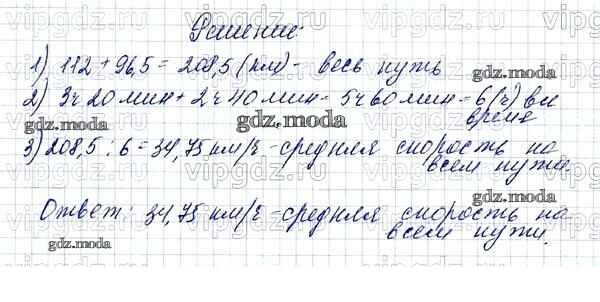 Решение:
1) 112 + 96,5 = 208,5 (км) - весь путь
gdz.moda
2) 3ч 20 мин + 2ч 40 мин = 5ч 60 мин = 6 (ч) все
время
gdz.moda
3) 208,5 : 6 = 34,75 км/ч - средняя скорость на
всем пути.
gdz.moda
gdz.moda
Ответ: 34,75 км/ч - средняя скорость на
всем пути.
gdz.moda
gdz.moda